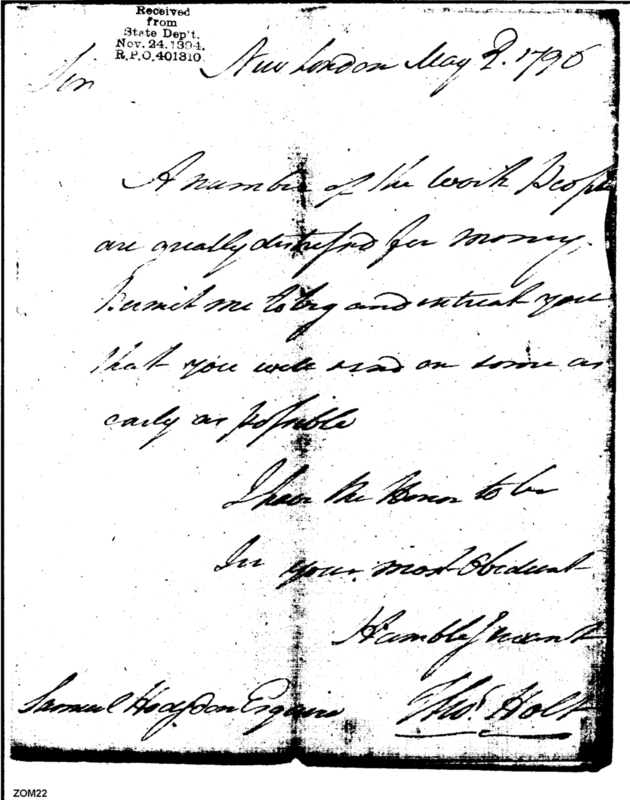 Received
from
State Dep't.
Nov. 24. 1894.
R.P.O. 401310.
New London May 2. 1796
Sir
A number of the Work People
are greatly distressed for money.
Permit me to beg and entreat you
that you will send on some as
early as possible
I have the Honor to be
Sir your most Obedient
Humble Servant
Samuel Hodgdon Esquire
Thos. Holt
ZOM22